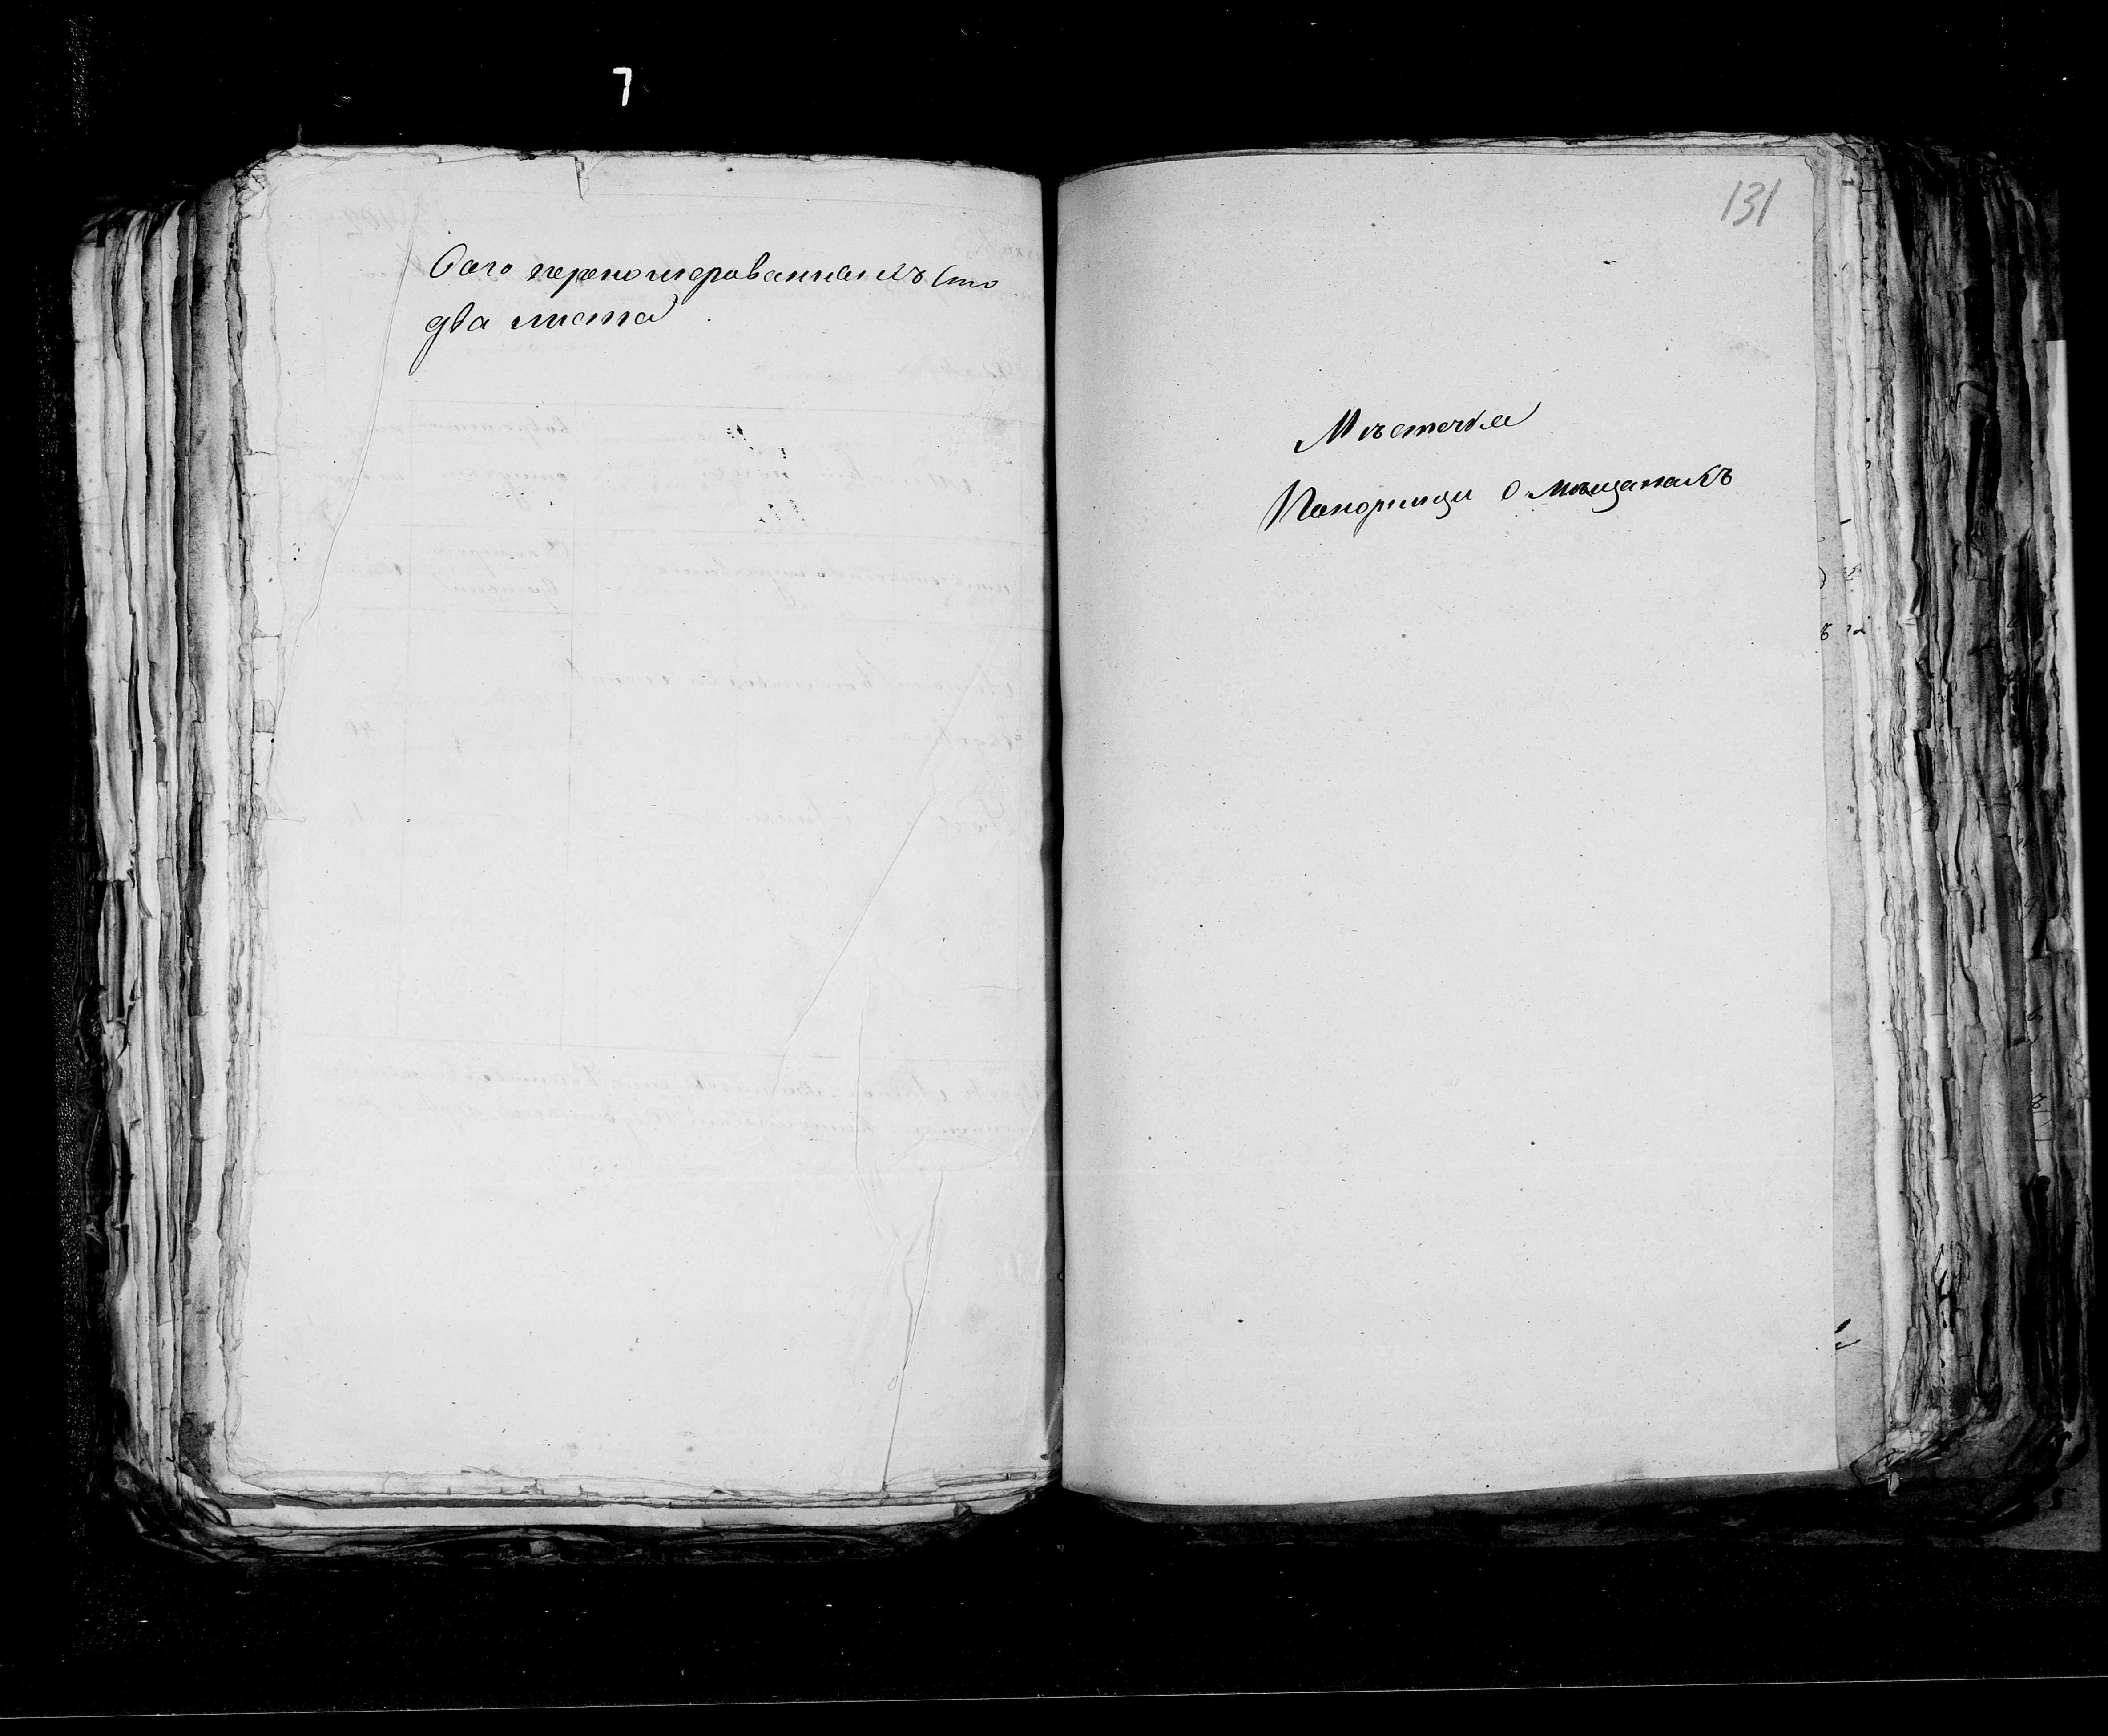 7
Всего перенумерованныхъ сто
два листа
131
Мѣстечка
Понорници о мѣщанахъ